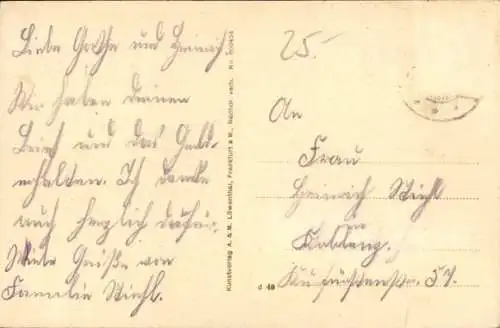 Liebe Grethe und Heinrich
Wir haben deinen
Brief und das Geld
erhalten. Ich danke
auch herzlich dafür.
Viele Grüße von
Familie Stiehl.
Kunstverlag A. & M. Löwenthal, Frankfurt a M., Nachdr. verb.
25-
An
Frau
Heinrich Stiehl
Koblenz
Kurfürstenstr. 57.
d 40